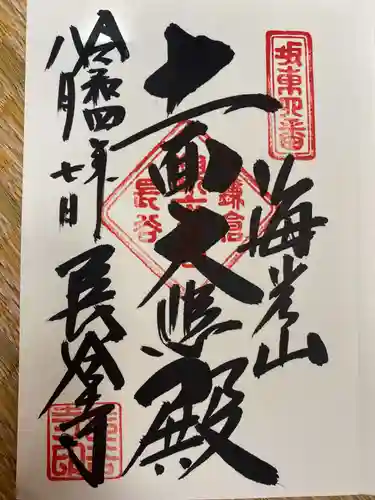 坂東四番
海光山
十一面大悲殿
鎌倉
長谷
令和四年
八月七日
長谷寺